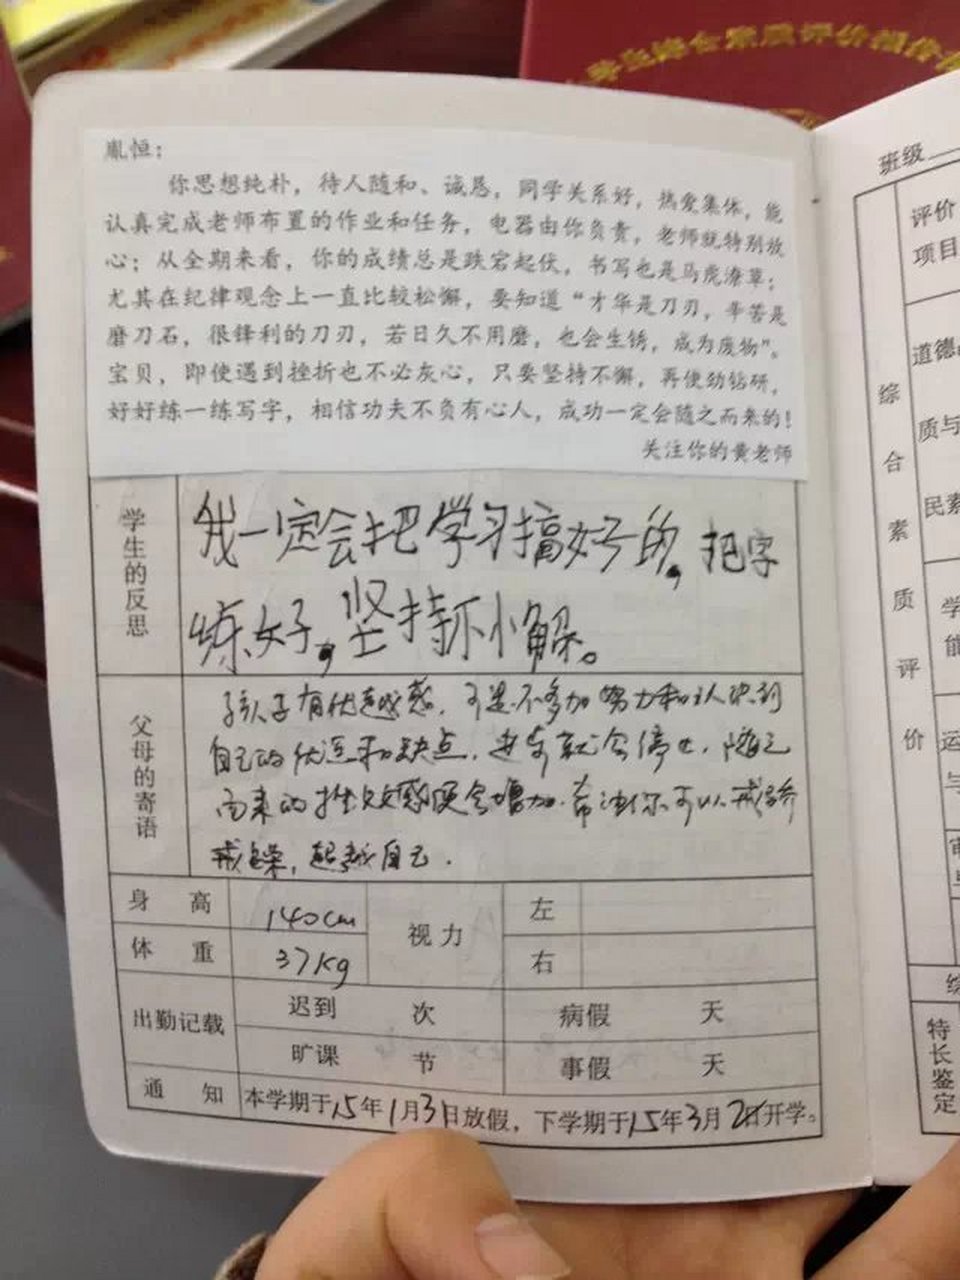 学生综合素质评价报告
胤恒：
你思想纯朴，待人随和、诚恳，同学关系好，热爱集体，能
认真完成老师布置的作业和任务，电器由你负责，老师就特别放
心；从全期来看，你的成绩总是跌宕起伏，书写也是马虎潦草；
尤其在纪律观念上一直比较松懈，要知道“才华是刀刃，辛苦是
磨刀石，很锋利的刀刃，若日久不用磨，也会生锈，成为废物”。
宝贝，即使遇到挫折也不必灰心，只要坚持不懈，再使劲钻研，
好好练一练写字，相信功夫不负有心人，成功一定会随之而来的！
关注你的黄老师
学生的反思
我一定会把学习搞好的，把字
练好，坚持不小解。
父母的寄语
孩子有优越感，可是不多加努力和认识到
自己的优点和缺点，进步就会停止，随之
而来的挫败感便会增加。希望你可以戒骄
戒躁，超越自己．
身高 140cm 视力 左
体重 37kg 右
出勤记载 迟到 次 病假 天
旷课 节 事假 天
通知 本学期于15年1月31日放假，下学期于15年3月2日开学。
班级
综合素质评价
评价
项目
道德
质与
民素
学
能
运
与
审
特长鉴定